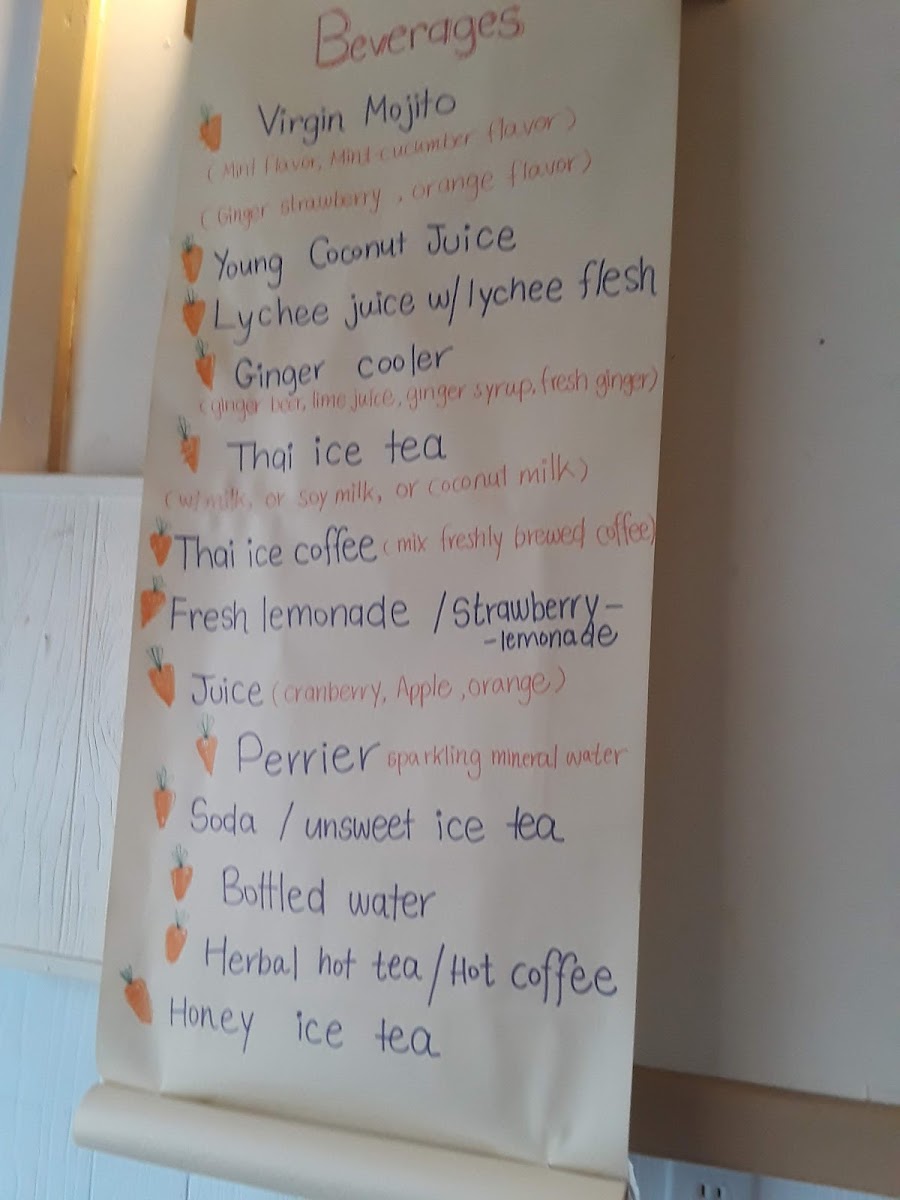 Beverages
Virgin Mojito
(Mint flavor, Mint-cucumber flavor)
(Ginger strawberry, orange flavor)
Young Coconut Juice
Lychee juice w/ lychee flesh
Ginger cooler
(ginger beer, lime juice, ginger syrup, fresh ginger)
Thai ice tea
(w/milk, or soy milk, or coconut milk)
Thai ice coffee (mix freshly brewed coffee)
Fresh lemonade / Strawberry-
-lemonade
Juice (cranberry, Apple, orange)
Perrier sparkling mineral water
Soda / unsweet ice tea
Bottled water
Herbal hot tea / Hot coffee
Honey ice tea